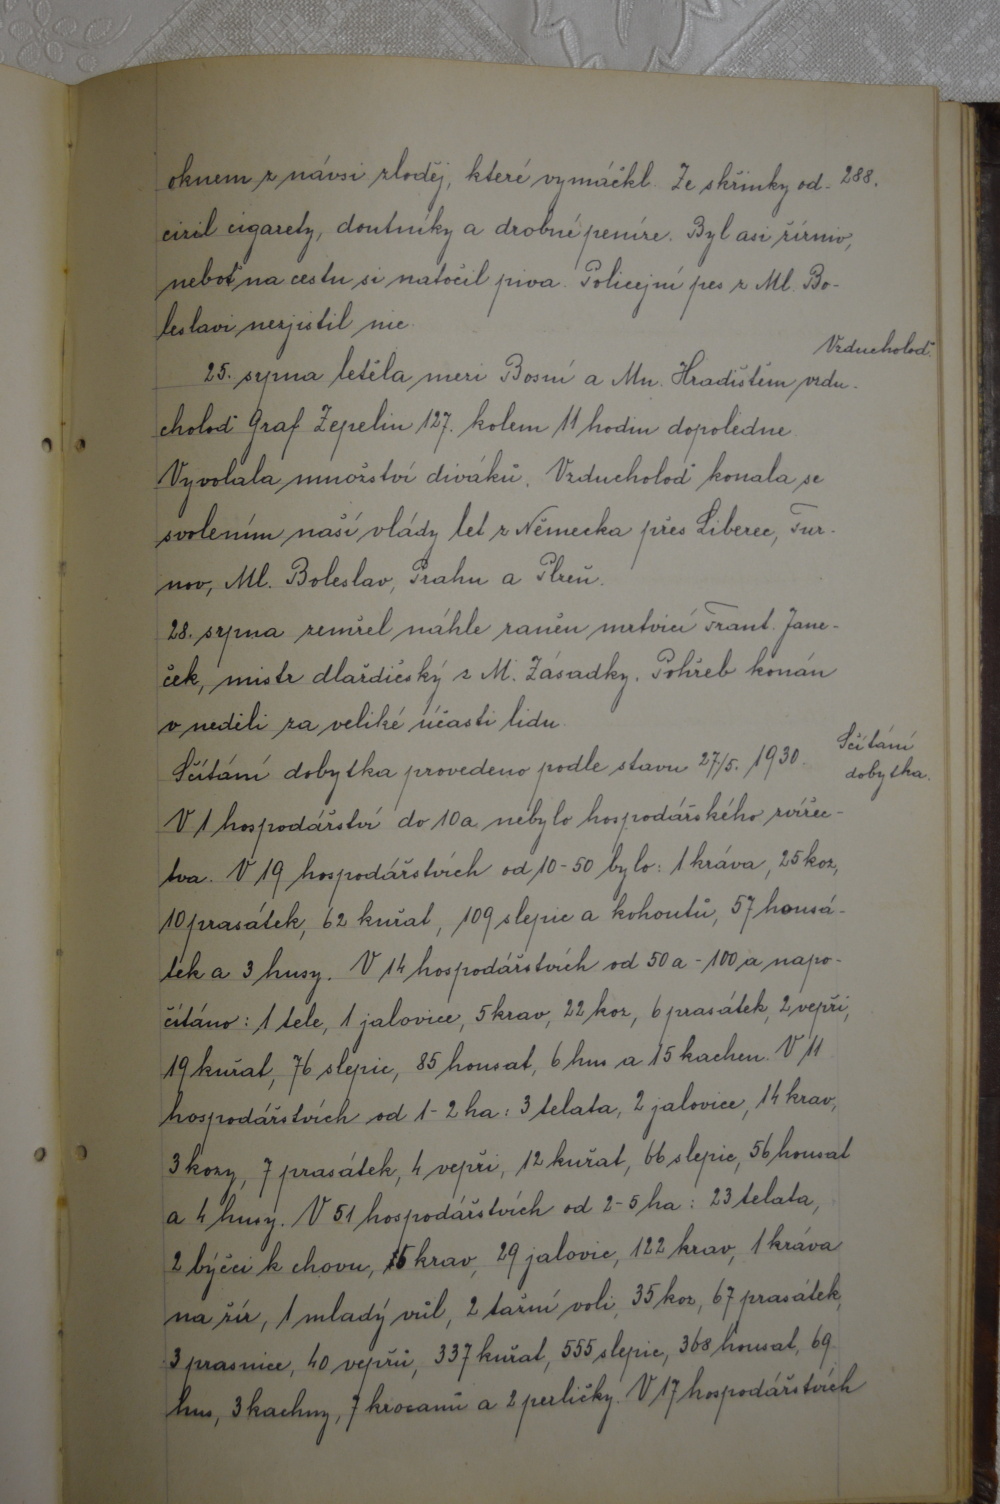 288.
oknem z návsi zloděj, které vymáčkl. Ze skřínky od-
cizil cigarety, doutníky a drobné peníze. Byl asi žízniv,
neboť na cestu si natočil piva. Policejní pes z Ml. Bo-
leslavi nezjistil nic.
Vzducholoď.
25. srpna letěla mezi Bosní a Mn. Hradištěm vzdu-
choloď Graf Zepelin 127. kolem 11 hodin dopoledne.
Vyvolala množství diváků. Vzducholoď konala se
svolením naší vlády let z Německa přes Liberec, Tur-
nov, Ml. Boleslav, Prahu a Plzeň.
28. srpna zemřel náhle raněn mrtvicí Frant. Jane-
ček, mistr dlaždičský z M. Zásadky. Pohřeb konán
v neděli za veliké účasti lidu.
Sčítání
dobytka.
Sčítání dobytka provedeno podle stavu 27/5. 1930.
V 1 hospodářství do 10a nebylo hospodářského zvířec-
tva. V 19 hospodářstvích od 10-50 bylo: 1 kráva, 25 koz,
10 prasátek, 62 kuřat, 109 slepic a kohoutů, 57 housá-
tek a 3 husy. V 14 hospodářstvích od 50 a - 100 a napo-
čítáno: 1 tele, 1 jalovice, 5 krav, 22 koz, 6 prasátek, 2 vepři,
19 kuřat, 76 slepic, 85 housat, 6 hus a 15 kachen. V 11
hospodářstvích od 1-2 ha: 3 telata, 2 jalovice, 14 krav,
3 kozy, 7 prasátek, 4 vepři, 12 kuřat, 66 slepic, 56 housat
a 4 husy. V 51 hospodářstvích od 2-5 ha: 23 telata,
2 býčci k chovu, krav, 29 jalovic, 122 krav, 1 kráva
na žír, 1 mladý vůl, 2 tažní voli, 35 koz, 67 prasátek,
3 prasnice, 40 vepřů, 337 kuřat, 555 slepic, 368 housat, 69
hus, 3 kachny, 7 krocanů a 2 perličky. V 17 hospodářstvích